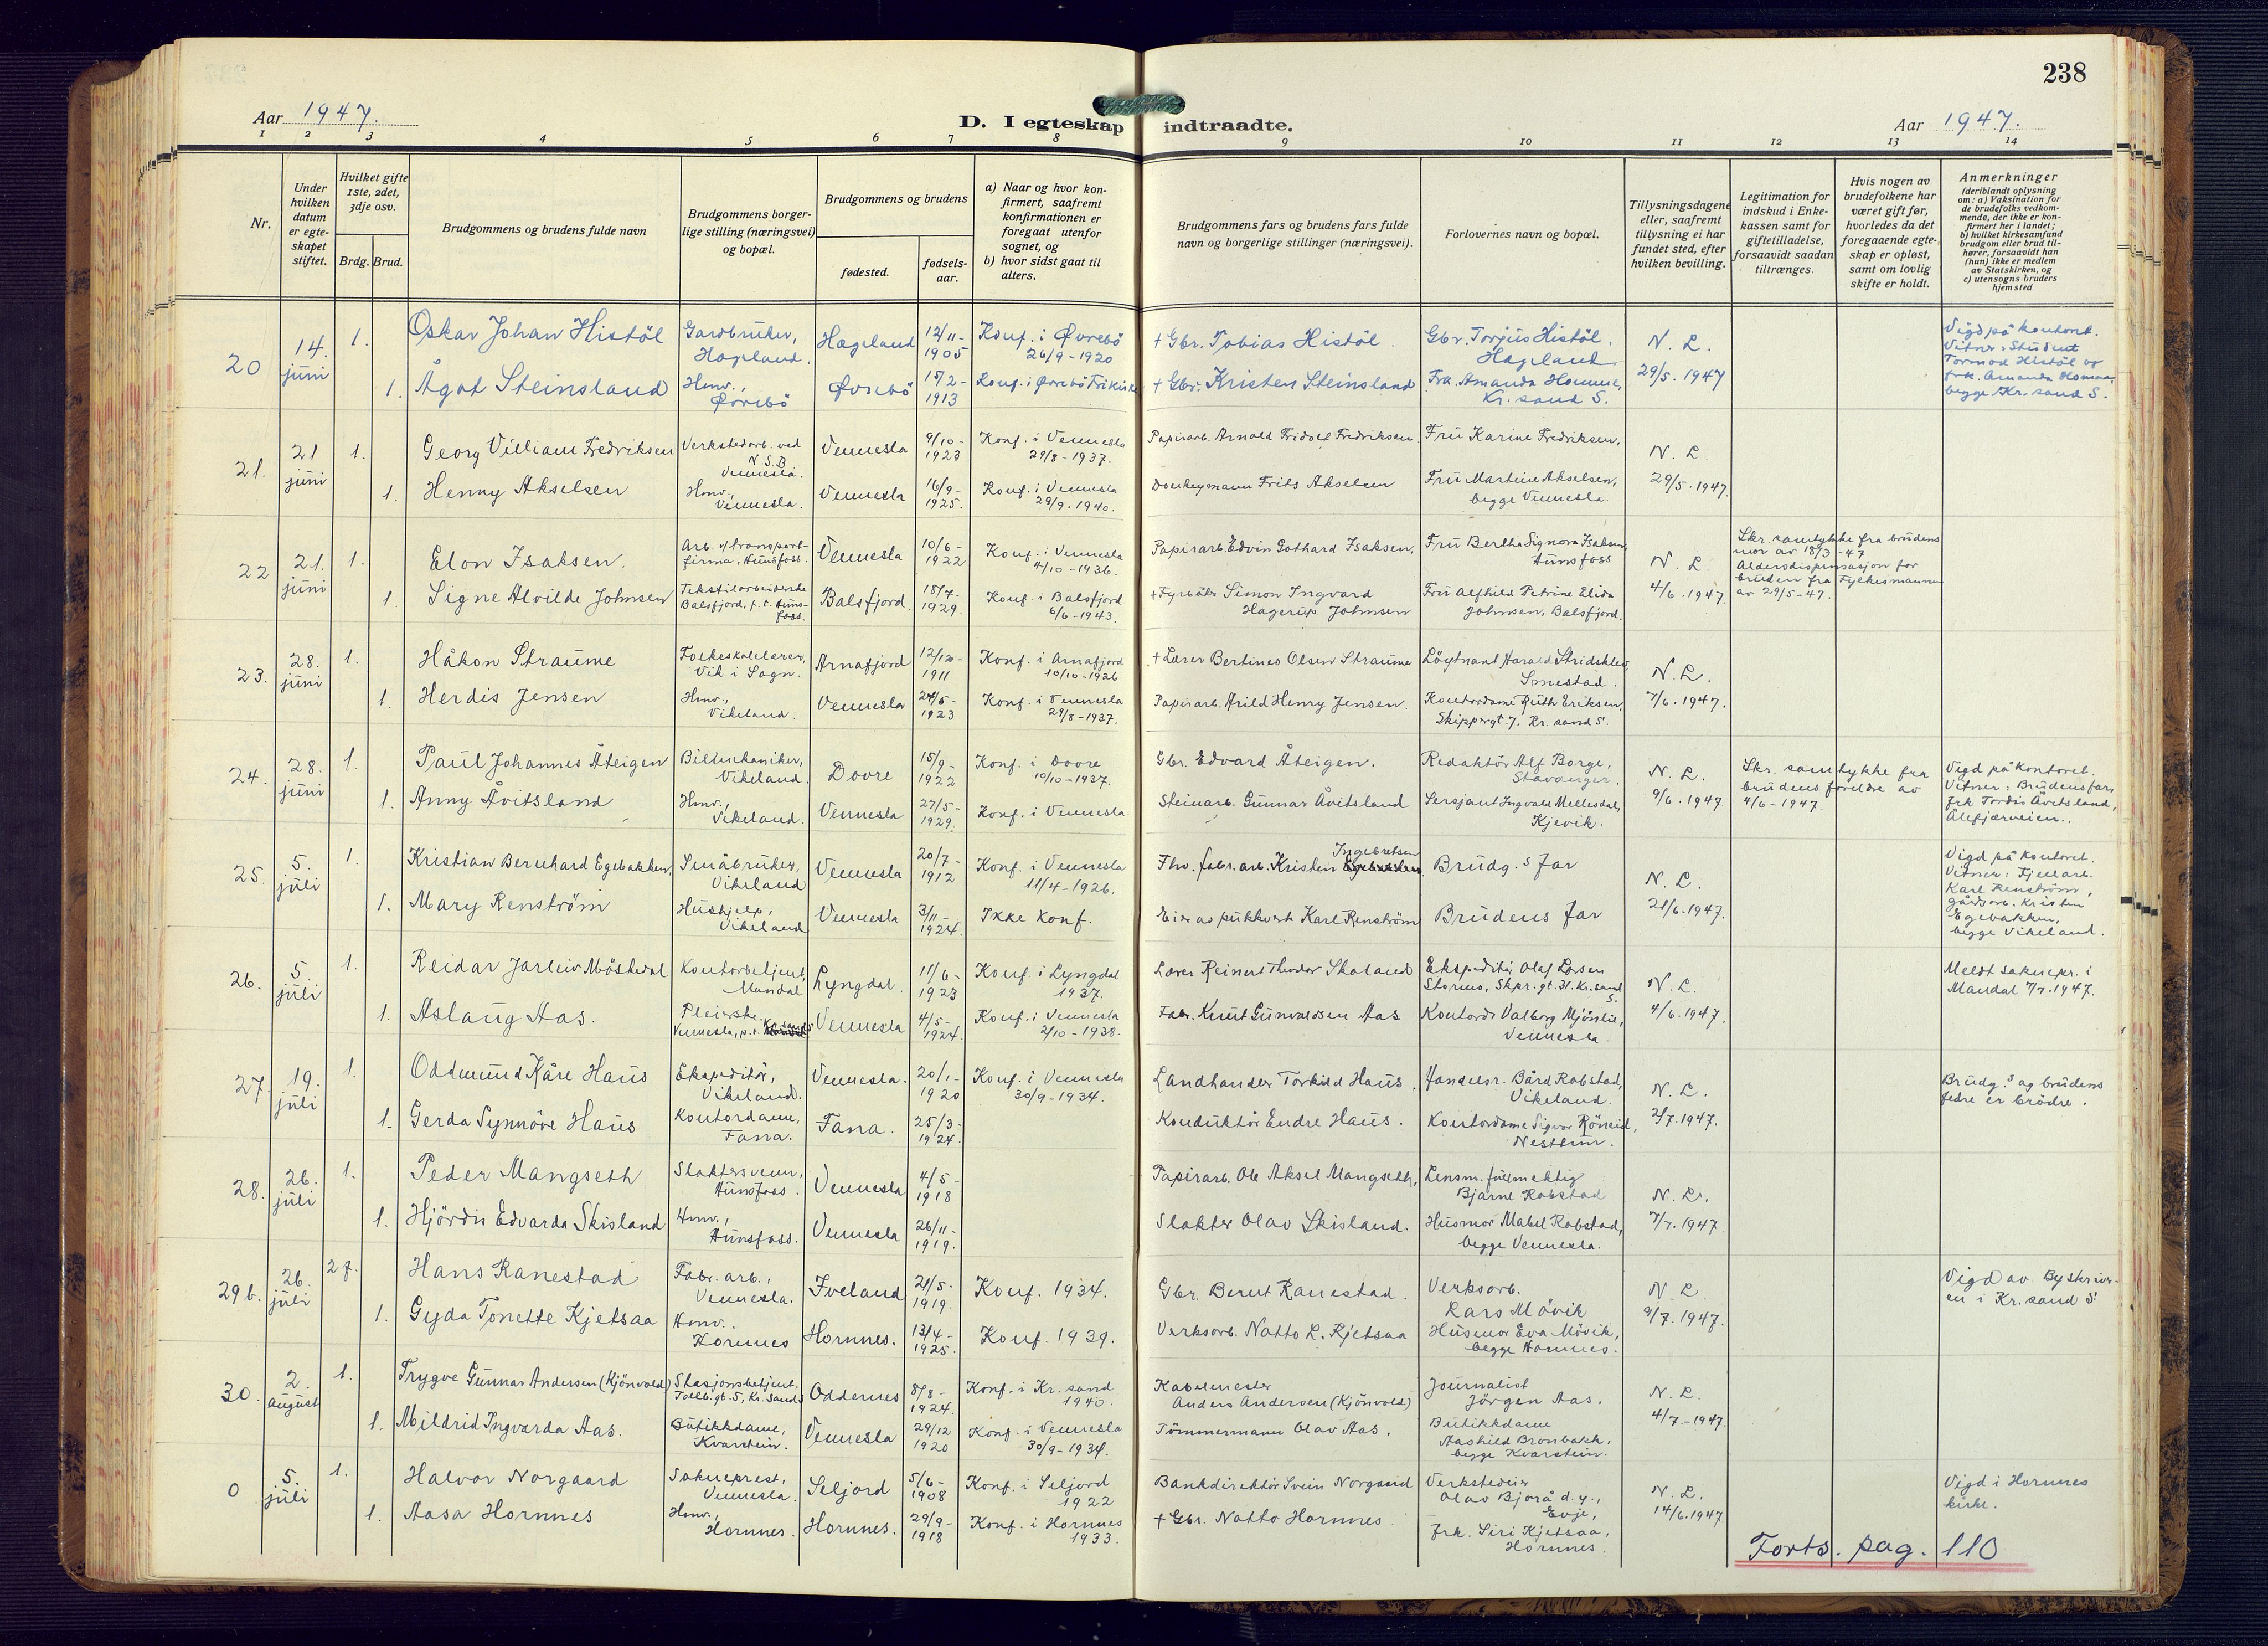 238
Aar 1947.
D. I egteskap indtraadte.
Aar 1947.
1 2 3 4 5 6 7 8 9 10 11 12 13 14
Nr.
Under
hvilken
datum
er egte-
skapet
stiftet.
Hvilket gifte
1ste, 2det,
3dje osv.
Brdg. Brud.
Brudgommens og brudens fulde navn
Brudgommens borger-
lige stilling (næringsvei)
og bopæl.
Brudgommens og brudens
fødested.
fødsels-
aar.
a) Naar og hvor kon-
firmert, saafremt
konfirmationen er
foregaat utenfor
sognet, og
b) hvor sidst gaat til
alters.
Brudgommens fars og brudens fars fulde
navn og borgerlige stillinger (næringsvei).
Forlovernes navn og bopæl.
Tillysningsdagene
eller, saafremt
tillysning ei har
fundet sted, efter
hvilken bevilling.
Legitimation for
indskud i Enke-
kassen samt for
giftetilladelse,
forsaavidt saadan
tiltrænges.
Hvis nogen av
brudefolkene har
været gift før,
hvorledes da det
foregaaende egte-
skap er opløst,
samt om lovlig
skifte er holdt.
Anmerkninger
(deriblandt oplysning
om: a) Vaksination for
de brudefolks vedkom-
mende, der ikke er kon-
firmert her i landet;
b) hvilket kirkesamfund
brudgom eller brud til-
hører, forsaavidt han
(hun) ikke er medlem
av Statskirken, og
c) utensogns bruders
hjemsted
20
14.
juni
1.
Oskar Johan Histöl
Gardbruker,
Hægeland.
Hægeland
12/11-
1905
Konf. i Øvrebö
26/9-1920
+ Gbr. Tobias Histöl.
Gbr. Torjus Histöl,
Hægeland
N. L.
29/5. 1947
Vigd på kontoret.
Vitner: Student
Tormod Histöl og
frk. Amanda Homme,
begge Kr. sand S.
1.
Ågot Steinsland
Hmv.,
Øvrebö
Øvrebö
15/2-
1913
Konf. i Øvrebö Frikirke
+ Gbr. Kristen Steinsland
Frk. Amanda Homme,
Kr. sand S.
21.
21
juni
1.
Georg Villiam Fredriksen
Verkstedarb. ved
N.S.B
Vennesla.
Vennesla
9/10-
1923
Konf. i Vennesla
29/8-1937.
Papirarb. Arnold Fridolf Fredriksen
Fru Karine Fredriksen,
N. L
29/5. 1947.
1.
Henny Akselsen
Hmv.,
Vennesla.
Vennesla
16/9-
1925.
Konf. i Vennesla
29/9. 1940.
Donkeymann Frits Akselsen
Fru Martine Akselsen,
begge Vennesla
22
21.
juni
1.
Elon Isaksen.
Arb. v/transport-
firma, Hunsfoss.
Vennesla
10/6-
1922
Konf. i Vennesla
4/10-1936.
Papirarb. Edvin Gothard Isaksen,
Fru Bertha Signora Isaksen,
Hunsfoss
N. L.
4/6. 1947.
Skr. samtykke fra brudens
mor av 18/3-47
Aldersdispensasjon for
bruden fra Fylkesmannen
av 29/5-47.
1.
Signe Alvilde Johnsen
Tekstilarbeiderske
Balsfjord, p.t. Huns-
foss.
Balsfjord
18/4-
1929.
Konf. i Balsfjord
6/6-1943.
+ Fyrbøter Simon Ingvard
Hagerup Johnsen
Fru Alfhild Petrine Elida
Johnsen, Balsfjord.
23.
28.
juni
1.
Håkon Straume
Folkeskolelærer,
Vik i Sogn.
Arnafjord
12/10-
1911
Konf. i Arnafjord
10/10-1926
+ Lærer Bertines Olsen Straume
Löytnant Harald Stridsklev,
Smestad.
N. L.
7/6. 1947.
1.
Herdis Jensen
Hmv.,
Vikeland.
Vennesla
24/5-
1923
Konf. i Vennesla
29/8-1937.
Papirarb. Arild Henry Jensen.
Kontordame Ruth Eriksen,
Skippergt. 7, Kr. sand S.
24.
28.
juni
1.
Paul Johannes Åteigen
Bilmekaniker,
Vikeland.
Dovre
15/9-
1922
Konf. i Dovre
10/10-1937.
Gbr. Edvard Åteigen.
Redaktör Alf Borge,
Stavanger.
N. L.
9/6. 1947.
Skr. samtykke fra
brudens foreldre av
4/6-1947.
Vigd på kontoret.
Vitner: Brudens far,
frk Tordis Åvitsland,
Ålefjærveien.
1.
Anny Åvitsland
Hmv.,
Vikeland.
Vennesla
27/5-
1929.
Konf. i Vennesla
Steinarb. Gunnar Åvitsland
Sersjant Ingvald Mellesdal,
Kjevik.
25.
5.
juli
1.
Kristian Bernhard Egebakken,
Småbruker,
Vikeland
Vennesla
20/7-
1912
Konf. i Vennesla
11/4-1926.
Fhv. fabr. arb. Kristen Ingebretsen
Brudg.s far
N. L.
21/6. 1947.
Vigd på kontoret.
Vitner: Fjellarb.
Karl Renström,
gårdsarb. Kristen
Egebakken,
begge Vikeland.
1.
Mary Renström
Hushjelp,
Vikeland
Vennesla
3/11-
1924.
Ikke konf.
Eier av pukkverk Karl Renström
Brudens far
26.
5.
juli
1.
Reidar Jarleiv Möskedal
Kontorbetjent,
Mandal
Lyngdal.
11/6-
1923
Konf. i Lyngdal
1937.
Lærer Reinert Theodor Skoland
Ekspeditör Olaf Larsen
Stormo, Skpr. gt. 31. Kr. sand
S.
N. L.
4/6. 1947.
Meldt soknepr. i
Mandal 7/7. 1947.
1.
Aslaug Aas.
Pleierske,
Vennesla, p.t. Kr. sand S
Vennesla
4/5-
1924.
Konf. i Vennesla
2/10-1938.
Fabr. Knut Gunvaldsen Aas
Kontord. Valborg Mjönlie,
Vennesla.
27.
19.
juli
1.
Oddmund Kåre Haus
Ekspeditör,
Vikeland.
Vennesla.
20/1-
1920
Konf. i Vennesla
30/9-1934.
Landhandler Torkild Haus,
Handelsr. Bård Robstad,
Vikeland.
N. L.
2/7. 1947.
Brudg.s og brudens
fedre er brödre.
1.
Gerda Synnöve Haus
Kontordame,
Fana.
Fana.
25/3-
1924.
Konduktör Endre Haus.
Kontordame Sigvor Röneid,
Nesttun.
28.
26.
juli
1.
Peder Mangseth
Slaktersvenn,
Hunsfoss.
Vennesla
4/5-
1918
Papirarb. Ole Aksel Mangseth,
Lensm. fullmektig
Bjarne Robstad
N. L.
7/7. 1947.
1.
Hjördis Edvarda Skisland
Hmv.,
Hunsfoss.
Vennesla
26/11-
1919.
Slakter Olav Skisland.
Husmor Mabel Robstad,
begge Vennesla.
29 b.
26.
juli
2 f.
Hans Ranestad
Fabr. arb.,
Vennesla.
Iveland
21/5-
1919.
Konf. 1934.
Gbr. Bernt Ranestad.
Verksarb.
Lars Mövik
N. L.
9/7. 1947.
Vigd av Byskriv-
en i Kr. sand S
1.
Gyda Tonette Kjetsaa
Hmv.,
Hornnes
Hornnes.
13/4-
1925.
Konf. 1939.
Verksarb. Natto L. Kjetsaa
Husmor Eva Mövik,
begge Hornnes.
30.
2.
august
1.
Trygve Gunnar Andersen (Kjönvold)
Stasjonsbetjent.
Tollb. gt. 5, Kr. sand S
Oddernes
8/8-
1924.
Konf. i Kr. sand
1940.
Kabelmester
Anders Andersen (Kjönvold)
Journalist
Jörgen Aas.
N. L.
4/7.-1947.
1.
Mildrid Ingvarda Aas.
Butikkdame,
Kvarstein.
Vennesla
29/12
1920
Konf. i Vennesla
30/9-1934.
Tömmermann Olav Aas.
Butikkdame
Aashild Bronbakk,
begge Kvarstein.
0
5.
juli
1.
Halvor Norgaard
Sokneprest,
Vennesla.
Seljord
5/6-
1908
Konf. i Seljord
1922
Bankdirektör Svein Norgaard
Verkstedeier
Olav Bjorå d.y.,
Evje,
N. L.
14/6. 1947
Vigd i Hornnes
kirke.
1.
Aasa Hornnes
Hmv.,
Hornnes.
Hornnes.
29/9-
1918
Konf. i Hornnes
1933.
+ Gbr. Natto Hornnes
frk. Siri Kjetsaa,
Hornnes.
Forts. pag. 110